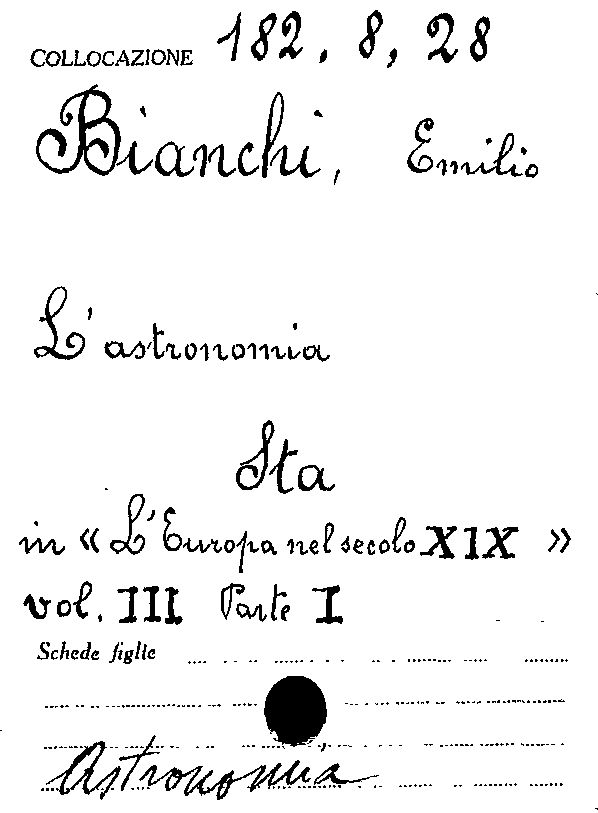 COLLOCAZIONE 182. 8, 28
Bianchi, Emilio
L'astronomia
Sta
in « L'Europa nel secolo XIX »
vol. III Parte I
Schede figlie
Astronomia